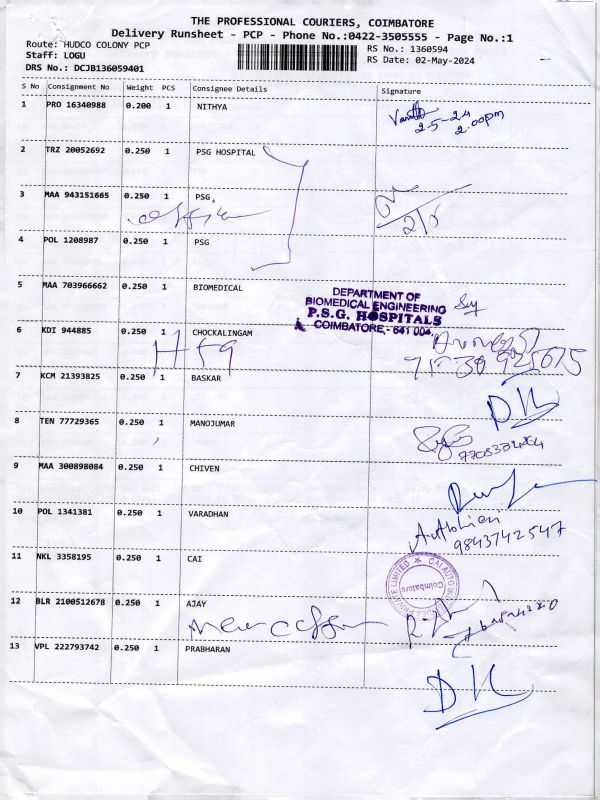 THE PROFESSIONAL COURIERS, COIMBATORE
Delivery Runsheet - PCP - Phone No.:0422-3505555 - Page No.:1
Route: HUDCO COLONY PCP
RS No.: 1360594
Staff: LOGU
RS Date: 02-May-2024
DRS No.: DCJB136059401
S No Consignment No Weight PCS Consignee Details Signature
1 PRO 16340988 0.200 1 NITHYA
2-5-24
2.00pm
2 TRZ 20052692 0.250 1 PSG HOSPITAL
3 MAA 943151665 0.250 1 PSG,
4 POL 1208987 0.250 1 PSG
5 MAA 703966662 0.250 1 BIOMEDICAL
DEPARTMENT OF
BIOMEDICAL ENGINEERING
P.S.G. HOSPITALS
COIMBATORE - 641 004.
6 KDI 944885 0.250 1 CHOCKALINGAM
H59
7 KCM 21393825 0.250 1 BASKAR
8 TEN 77729365 0.250 1 MANOJUMAR
9 MAA 300898084 0.250 1 CHIVEN
10 POL 1341381 0.250 1 VARADHAN
9843742547
11 NKL 3358195 0.250 1 CAI
CAI AUTO INDUSTRIES PRIVATE LIMITED
Coimbatore
12 BLR 2100512678 0.250 1 AJAY
13 VPL 222793742 0.250 1 PRABHARAN